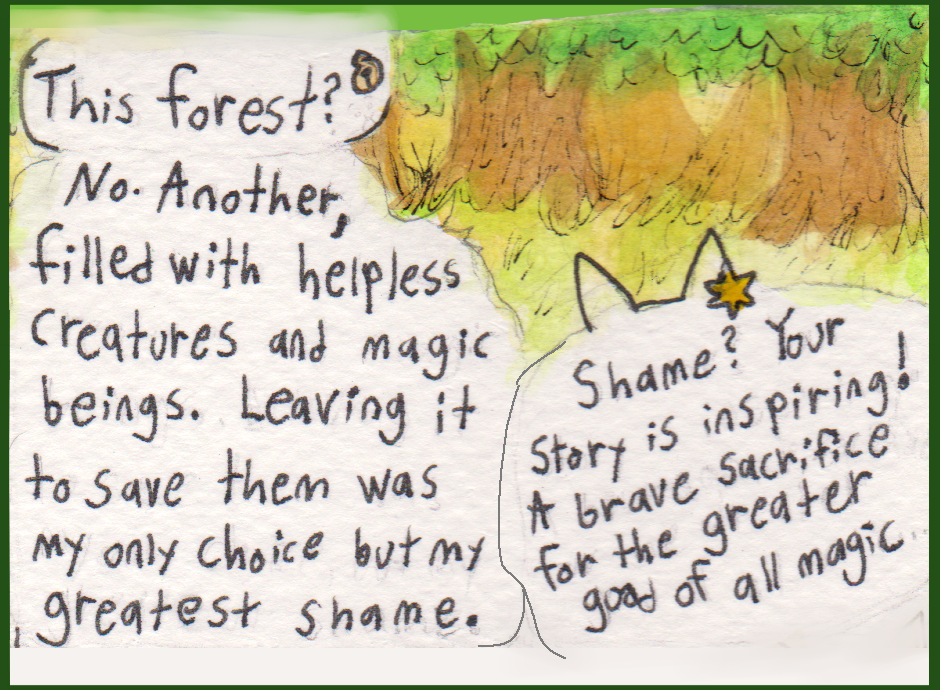 This forest?
No. Another,
filled with helpless
creatures and magic
beings. Leaving it
to save them was
my only choice but my
greatest shame.
Shame? Your
story is inspiring!
A brave sacrifice
for the greater
good of all magic.